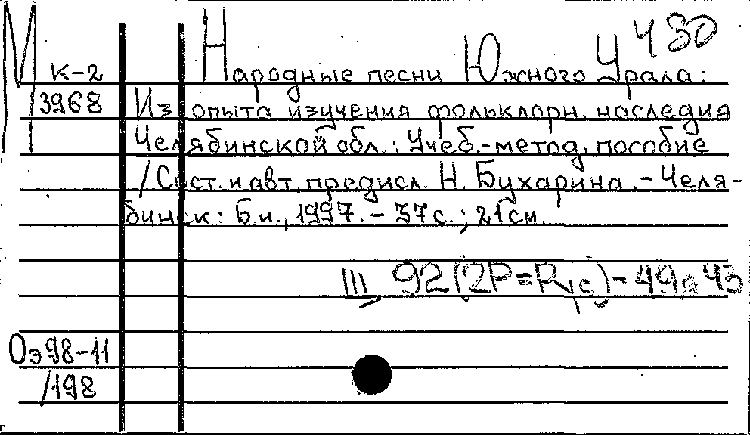 М К-2 Народные песни Южного Урала: 480
/3968 Из опыта изучения фольклорн. наследия
Челябинской обл.: Учеб.-метод. пособие
/Сост. и авт. предисл. Н. Бухарина. - Челя-
бинск: Б.и., 1997. - 37с.; 21см.
III 92(2Р=
Оэ98-11
/198